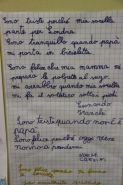 Sono triste perché mia sorella
parte per Londra.
Sono tranquillo quando papà
mi porta in bicicletta
Sono felice che mia mamma mi
prepara le polpette al sugo.
mi arrabbio quando mia sorella
mi fa il solletico sotto i piedi
Leonardo
Sono triste quando non c'è
papà.
Sono felice perché oggi viene
nonno a prendermi